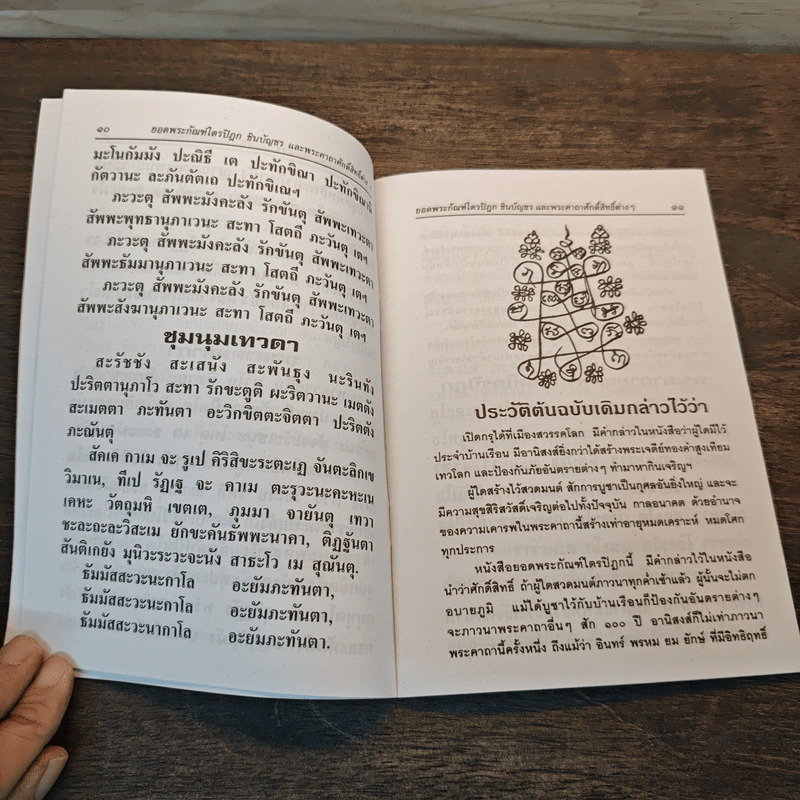 ๑๐ ยอดพระกัณฑ์ไตรปิฎก ชินบัญชร และพระคาถาศักดิ์สิทธิ์ต่าง ๆ
มะโนกัมมัง ปะณิธี เต ปะทักขิณา ปะทักขิณานิ
กัตวานะ ละภันตัตเถ ปะทักขิเณฯ
ภะวะตุ สัพพะมังคะลัง รักขันตุ สัพพะเทวะดา
สัพพะพุทธานุภาเวนะ สะทา โสตถี ภะวันตุ เตฯ
ภะวะตุ สัพพะมังคะลัง รักขันตุ สัพพะเทวะตา
สัพพะธัมมานุภาเวนะ สะทา โสตถี ภะวันตุ เตฯ
ภะวะตุ สัพพะมังคะลัง รักขันตุ สัพพะเทวะตา
สัพพะสังฆานุภาเวนะ สะทา โสตถี ภะวันตุ เตฯ
ชุมนุมเทวดา
สะรัชชัง สะเสนัง สะพันธุง นะรินทัง
ปะริตตานุภาโว สะทา รักขะตูติ ผะริตวานะ เมตตัง
สะเมตตา ภะทันตา อะวิกขิตตะจิตตา ปะริตตัง
ภะณันตุ
สัคเค กาเม จะ รูเป คิริสิขะระตะเฏ จันตะลิกเข
วิมาเน, ทีเป รัฏเฐ จะ คาเม ตะรุวะนะคะหะเน
เคหะ วัตถุมหิ เขตเต, ภุมมา จายันตุ เทวา
ชะละถะละวิสะเม ยักขะคันธัพพะนาคา, ติฏฐันตา
สันติเกยัง มุนิวะระวะจะนัง สาธะโว เม สุณันตุ.
ธัมมัสสะวะนะกาโล อะยัมภะทันตา,
ธัมมัสสะวะนะกาโล อะยัมภะทันตา,
ธัมมัสสะวะนากาโล อะยัมภะทันตา.
ยอดพระกัณฑ์ไตรปิฎก ชินบัญชร และพระคาถาศักดิ์สิทธิ์ต่าง ๆ ๑๑
ประวัติต้นฉบับเดิมกล่าวไว้ว่า
เปิดกรุได้ที่เมืองสวรรคโลก มีคำกล่าวในหนังสือว่าผู้ใดมีไว้
ประจำบ้านเรือน มีอานิสงส์ยิ่งกว่าได้สร้างพระเจดีย์ทองคำสูงเทียม
เทวโลก และป้องกันภัยอันตรายต่างๆ ทำมาหากินเจริญฯ
ผู้ใดสร้างไว้สวดมนต์ สักการบูชาเป็นกุศลอันยิ่งใหญ่ และจะ
มีความสุขสิริสวัสดิ์เจริญต่อไปทั้งปัจจุบัน กาลอนาคต ด้วยอำนาจ
ของความเคารพในพระคาถานี้สร้างเท่าอายุหมดเคราะห์ หมดโศก
ทุกประการ
หนังสือยอดพระกัณฑ์ไตรปิฎกนี้ มีคำกล่าวไว้ในหนังสือ
นำว่าศักดิ์สิทธิ์ ถ้าผู้ใดสวดมนต์ภาวนาทุกค่ำเช้าแล้ว ผู้นั้นจะไม่ตก
อบายภูมิ แม้ได้บูชาไว้กับบ้านเรือนก็ป้องกันอันตรายต่างๆ
จะภาวนาพระคาถาอื่นๆ สัก ๑๐๐ ปี อานิสงส์ก็ไม่เท่าภาวนา
พระคาถานี้ครั้งหนึ่ง ถึงแม้ว่า อินทร์ พรหม ยม ยักษ์ ที่มีอิทธิฤทธิ์